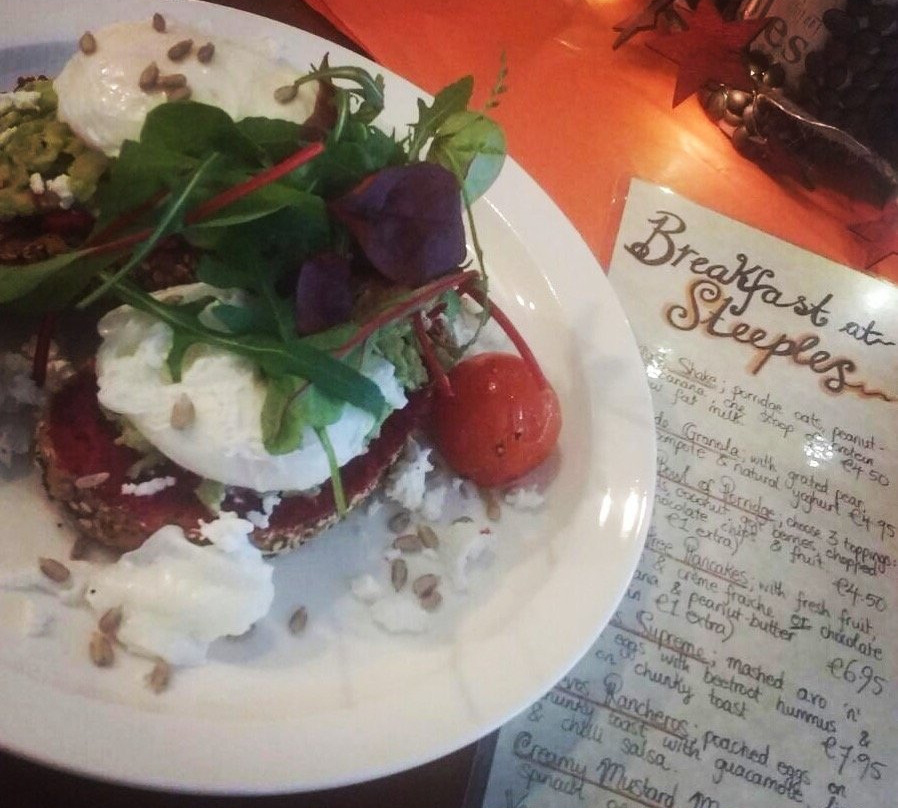 es
Breakfast at
Steeples
Shake; porridge oats, peanut-
banana, one scoop of protein
fat milk. €4.50
Granola; with grated pear,
& natural yoghurt €4.95
Bowl of Porridge, choose 3 toppings:
coconut, goji berries, chopped
chocolate chips & fruit.
€1 extra) €4.50
Pancakes; with fresh fruit,
& crème fraiche or chocolate
& peanut-butter
€1 extra) €6.95
Supreme; mashed avo 'n'
eggs with beetroot hummus &
on chunky toast €7.95
Rancheros; poached eggs on
chunky toast with guacamole
& chilli salsa.
Creamy Mustard
spinach